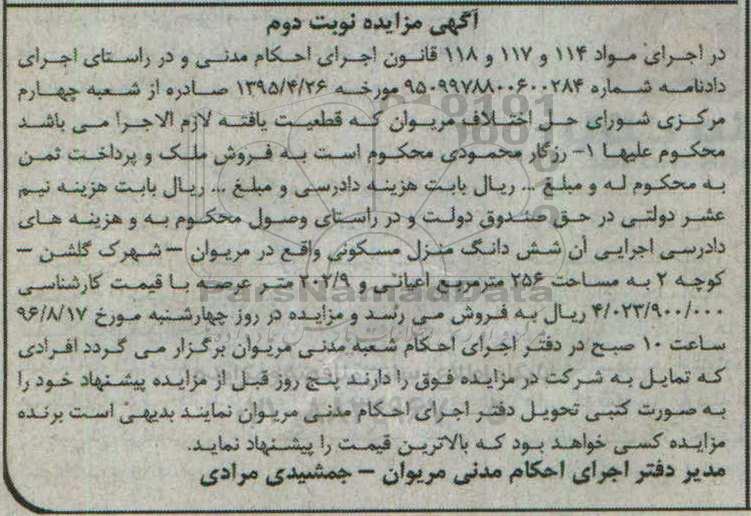 آگهی مزایده نوبت دوم
در اجرای مواد ۱۱۴ و ۱۱۷ و ۱۱۸ قانون اجرای احکام مدنی و در راستای اجرای
دادنامه شماره ۹۵۰۹۹۷۸۸۰۰۶۰۰۲۸۴ مورخه ۱۳۹۵/۴/۲۶ صادره از شعبه چهارم
مرکزی شورای حل اختلاف مریوان که قطعیت یافته لازم الاجرا می باشد
محکوم علیها ۱- رزگار محمودی محکوم است به فروش ملک و پرداخت ثمن
به محکوم له و مبلغ ... ریال بابت هزینه دادرسی و مبلغ ... ریال بابت هزینه نیم
عشر دولتی در حق صندوق دولت و در راستای وصول محکوم به و هزینه های
دادرسی اجرایی آن شش دانگ منزل مسکونی واقع در مریوان – شهرک گلشن –
کوچه ۲ به مساحت ۲۵۶ مترمربع اعیانی و ۲۰۲/۹ متر عرصه با قیمت کارشناسی
۴/۰۲۳/۹۰۰/۰۰۰ ریال به فروش می رسد و مزایده در روز چهارشنبه مورخ ۹۶/۸/۱۷
ساعت ۱۰ صبح در دفتر اجرای احکام شعبه مدنی مریوان برگزار می گردد افرادی
که تمایل به شرکت در مزایده فوق را دارند پنج روز قبل از مزایده پیشنهاد خود را
به صورت کتبی تحویل دفتر اجرای احکام مدنی مریوان نمایند بدیهی است برنده
مزایده کسی خواهد بود که بالاترین قیمت را پیشنهاد نماید.
مدیر دفتر اجرای احکام مدنی مریوان – جمشیدی مرادی
ParsNamadData